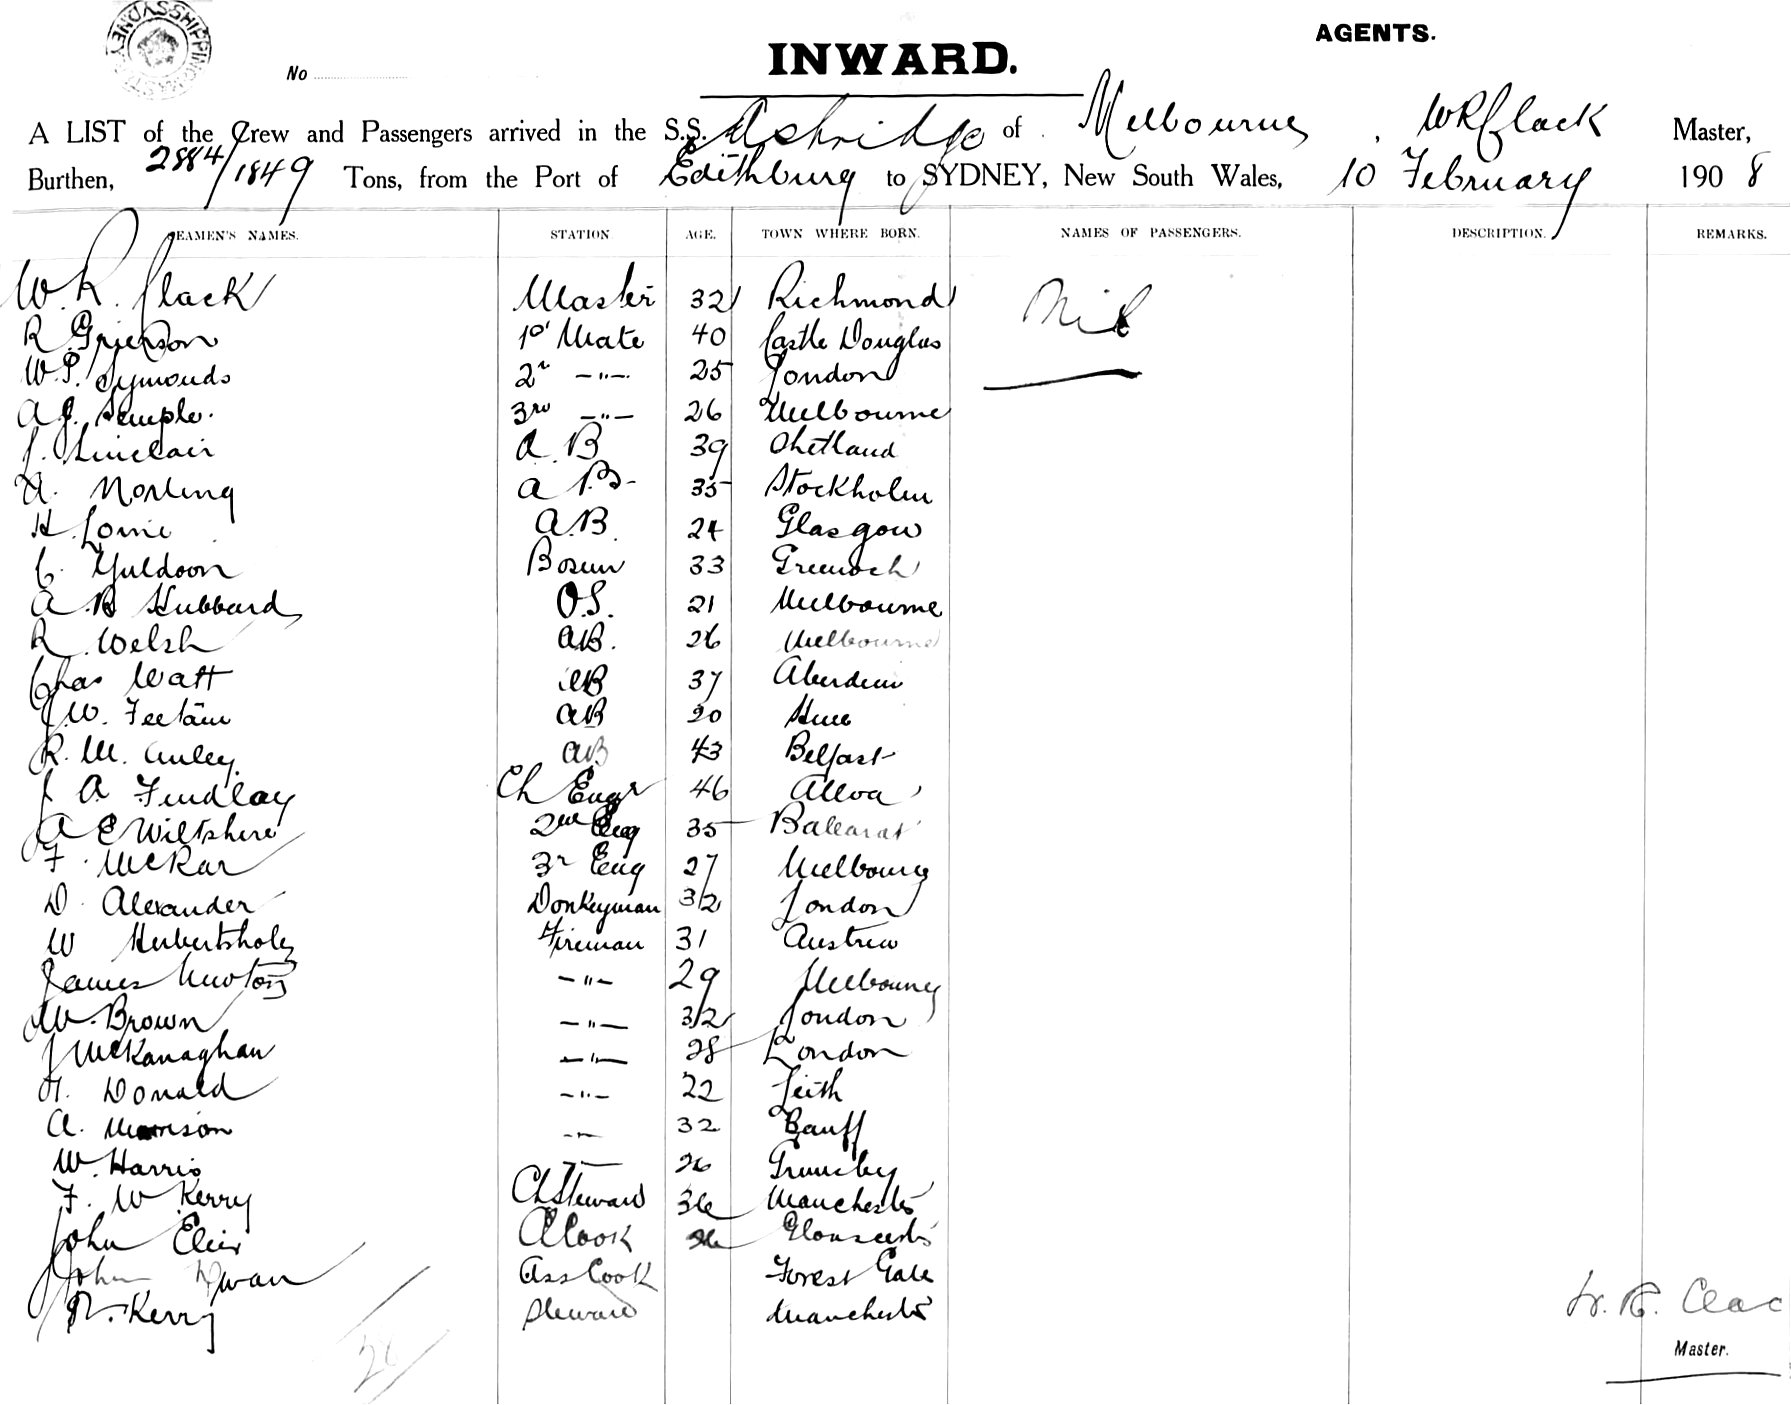 SHIPPING MASTER SYDNEY
AGENTS.
INWARD.
No
A LIST of the Crew and Passengers arrived in the S.S. Ashridge of Melbourne, W R Clack Master,
Burthen, 2884/1849 Tons, from the Port of Edithburg to SYDNEY, New South Wales, 10 February 1908
SEAMEN'S NAMES. STATION AGE. TOWN WHERE BORN. NAMES OF PASSENGERS. DESCRIPTION. REMARKS.
W. R. Clack Master 32 Richmond Nil
R Grierson 1st Mate 40 Castle Douglas
W. P. Symonds 2n -"- 25 London
A. J. Semple. 3rd -"- 26 Melbourne
J. Sinclair A.B 39 Shetland
A. Norling A B- 35 Stockholm
H. Lorrie A.B. 24 Glasgow
C. Muldoon Bosun 33 Greenock
A B Hubbard O.S. 21 Melbourne
R. Welsh AB. 26 Melbourne
Chas Watt AB 37 Aberdein
J. W. Feetam AB 20 Hull
R. McAuley. AB 43 Belfast
J A Findlay Ch Engr 46 Alloa
A E Wiltshire 2nd Eng 35 Ballarat
F. McRae 3r Eng 27 Melbourne
D. Alexander Donkeyman 32 London
W Fireman 31 Austria
James Newton -"- 29 Melbourne
W. Brown -"- 32 London
J McKanaghan -"- 28 London
Donald -"- 22 Leith
A. Morrison -"- 32 Banff
W. Harris 26 Grimsby
F. W Kerry Ch Steward 36 Manchester
John Cook Gloucester
John Dwan Ass Cook Forest Gate
Kerry Steward Manchester
W. R. Clac
Master.